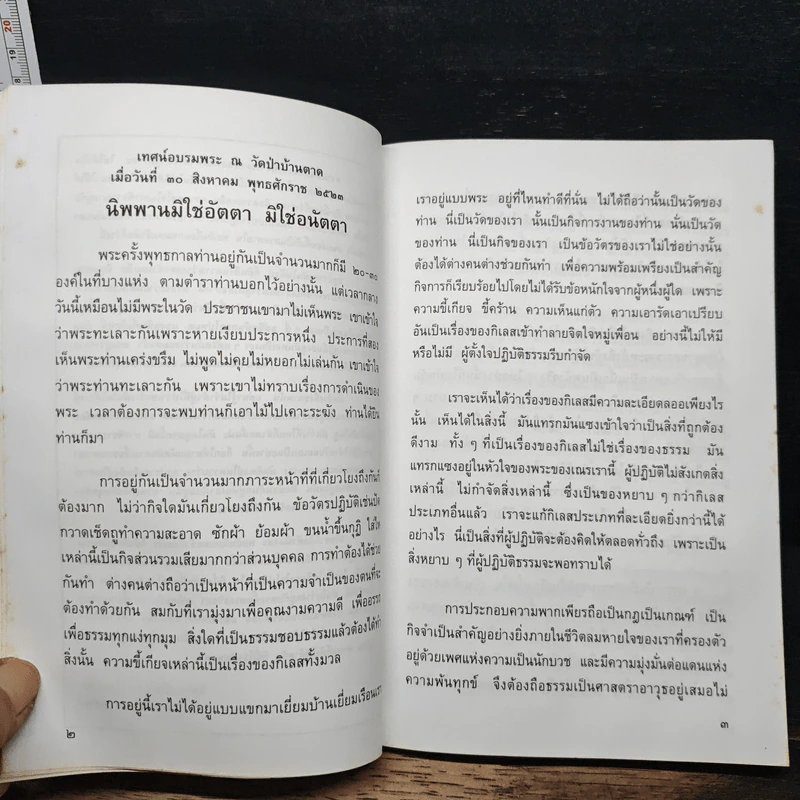 เทศน์อบรมพระ ณ วัดป่าบ้านตาด
เมื่อวันที่ ๓๐ สิงหาคม พุทธศักราช ๒๕๒๓
นิพพานมิใช่อัตตา มิใช่อนัตตา
พระครั้งพุทธกาลท่านอยู่กันเป็นจำนวนมากก็มี ๒๐-๓๐
องค์ในที่บางแห่ง ตามตำราท่านบอกไว้อย่างนั้น แต่เวลากลาง
วันนี้เหมือนไม่มีพระในวัด ประชาชนเขามาไม่เห็นพระ เขาเข้าใจ
ว่าพระทะเลาะกันเพราะหายเงียบประการหนึ่ง ประการที่สอง
เห็นพระท่านเคร่งขรึม ไม่พูดไม่คุยไม่หยอกไม่เล่นกัน เขาเข้าใจ
ว่าพระท่านทะเลาะกัน เพราะเขาไม่ทราบเรื่องการดำเนินของ
พระ เวลาต้องการจะพบท่านก็เอาไม้ไปเคาะระฆัง ท่านได้ยิน
ท่านก็มา
การอยู่กันเป็นจำนวนมากภาระหน้าที่ที่เกี่ยวโยงถึงกันก็
ต้องมาก ไม่ว่ากิจใดมันเกี่ยวโยงถึงกัน ข้อวัตรปฏิบัติเช่นปัด
กวาดเช็ดถูทำความสะอาด ซักผ้า ย้อมผ้า ขนน้ำขึ้นกุฏิ ใส่ไห
เหล่านี้เป็นกิจส่วนรวมเสียมากกว่าส่วนบุคคล การทำต้องได้ช่วย
กันทำ ต่างคนต่างถือว่าเป็นหน้าที่เป็นความจำเป็นของตนที่จะ
ต้องทำด้วยกัน สมกับที่เรามุ่งมาเพื่อคุณงามความดี เพื่ออรรถ
เพื่อธรรมทุกแง่ทุกมุม สิ่งใดที่เป็นธรรมชอบธรรมแล้วต้องได้ทำ
สิ่งนั้น ความขี้เกียจเหล่านี้เป็นเรื่องของกิเลสทั้งมวล
การอยู่นี้เราไม่ได้อยู่แบบแขกมาเยี่ยมบ้านเยี่ยมเรือนเรา
๒
เราอยู่แบบพระ อยู่ที่ไหนทำดีที่นั่น ไม่ได้ถือว่านั้นเป็นวัดของ
ท่าน นี่เป็นวัดของเรา นั้นเป็นกิจการงานของท่าน นั่นเป็นวัด
ของท่าน นี่เป็นกิจของเรา เป็นข้อวัตรของเราไม่ใช่อย่างนั้น
ต้องได้ต่างคนต่างช่วยกันทำ เพื่อความพร้อมเพรียงเป็นสำคัญ
กิจการก็เรียบร้อยไปโดยไม่ได้รับข้อหนักใจจากผู้หนึ่งผู้ใด เพราะ
ความขี้เกียจ ขี้คร้าน ความเห็นแก่ตัว ความเอารัดเอาเปรียบ
อันเป็นเรื่องของกิเลสเข้าทำลายจิตใจหมู่เพื่อน อย่างนี้ไม่ให้มี
หรือไม่มี ผู้ตั้งใจปฏิบัติธรรมรีบกำจัด
เราจะเห็นได้ว่าเรื่องของกิเลสมีความละเอียดลออเพียงไร
นั้น เห็นได้ในสิ่งนี้ มันแทรกมันแซงเข้าใจว่าเป็นสิ่งที่ถูกต้อง
ดีงาม ทั้ง ๆ ที่เป็นเรื่องของกิเลสไม่ใช่เรื่องของธรรม มัน
แทรกแซงอยู่ในหัวใจของพระของเณรเรานี้ ผู้ปฏิบัติไม่สังเกตสิ่ง
เหล่านี้ ไม่กำจัดสิ่งเหล่านี้ ซึ่งเป็นของหยาบ ๆ กว่ากิเลส
ประเภทอื่นแล้ว เราจะแก้กิเลสประเภทที่ละเอียดยิ่งกว่านี้ได้
อย่างไร นี่เป็นสิ่งที่ผู้ปฏิบัติจะต้องคิดให้ตลอดทั่วถึง เพราะเป็น
สิ่งหยาบ ๆ ที่ผู้ปฏิบัติธรรมจะพอทราบได้
การประกอบความพากเพียรถือเป็นกฎเป็นเกณฑ์ เป็น
กิจจำเป็นสำคัญอย่างยิ่งภายในชีวิตลมหายใจของเราที่ครองตัว
อยู่ด้วยเพศแห่งความเป็นนักบวช และมีความมุ่งมั่นต่อแดนแห่ง
ความพ้นทุกข์ จึงต้องถือธรรมเป็นศาสตราอาวุธอยู่เสมอไม่
๓
20
19